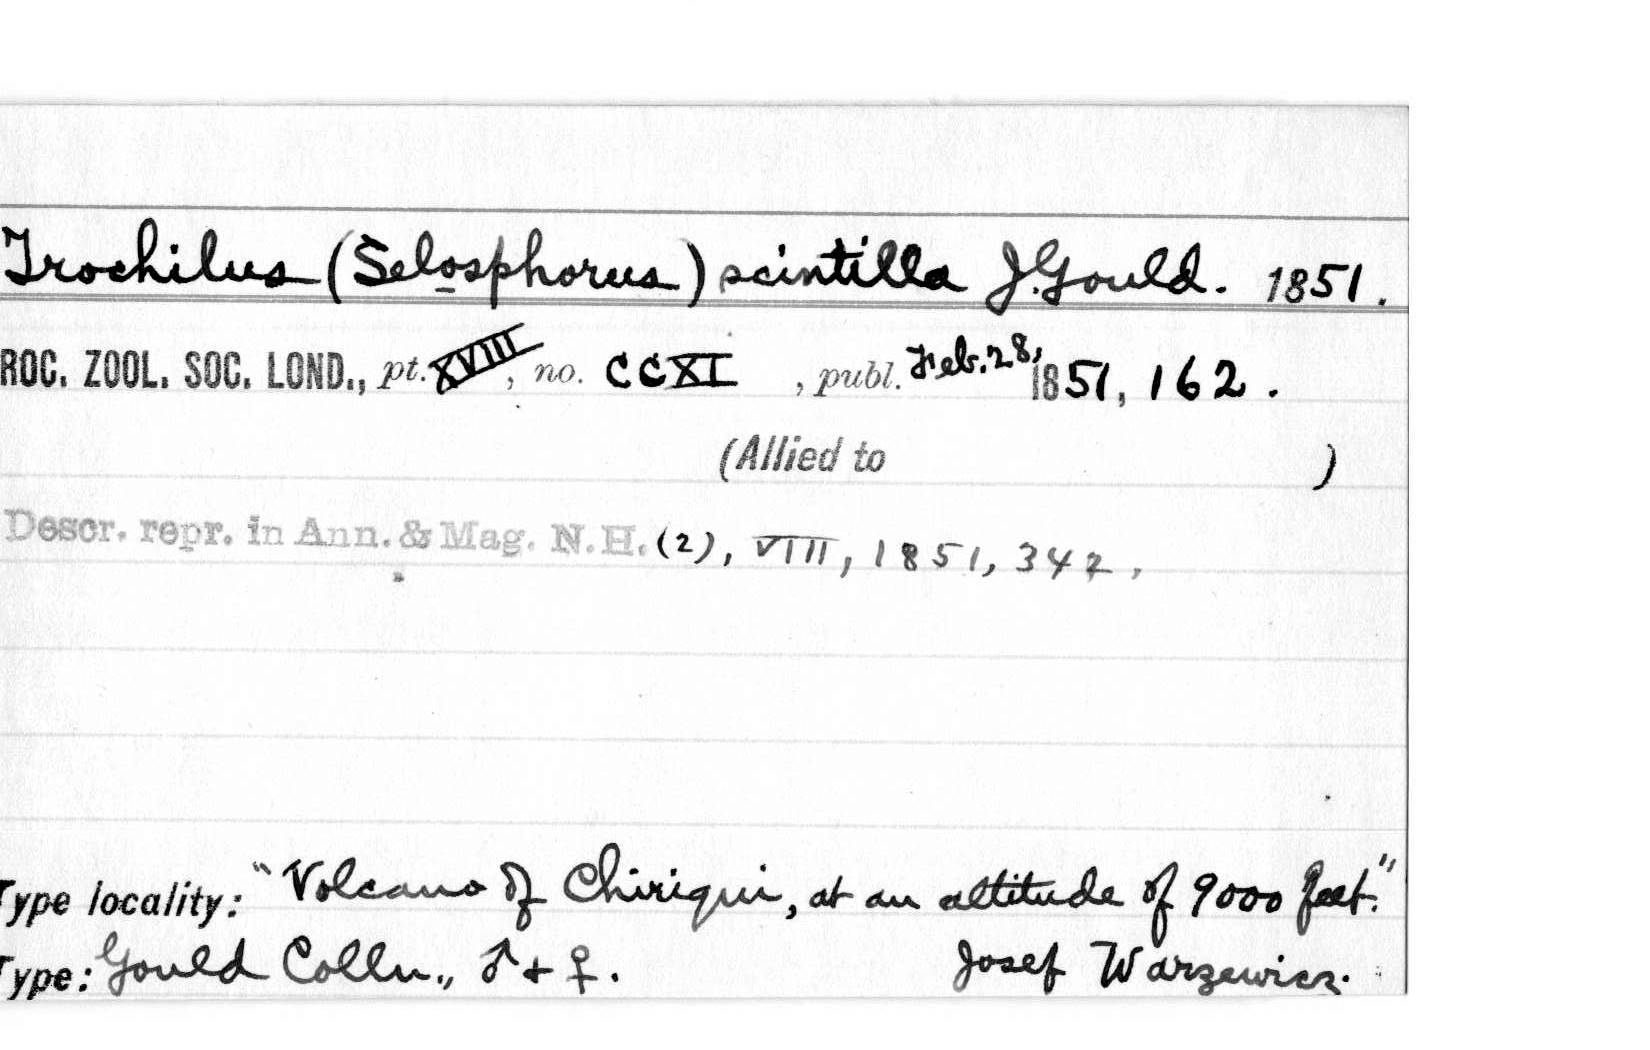 Trochilus (Selosphorus) scintilla J. Gould. 1851.
ROC. ZOOL. SOC. LOND., pt. XVIII, no. CCXI , publ. Feb. 28, 1851, 162.
(Allied to )
Descr. repr. in Ann. & Mag. N.H. (2), VIII, 1851, 342,
Type locality: "Volcano of Chiriqui, at an altitude of 9000 feet."
Type: Gould Colln., ♂ + ♀. Josef Warzewicz.